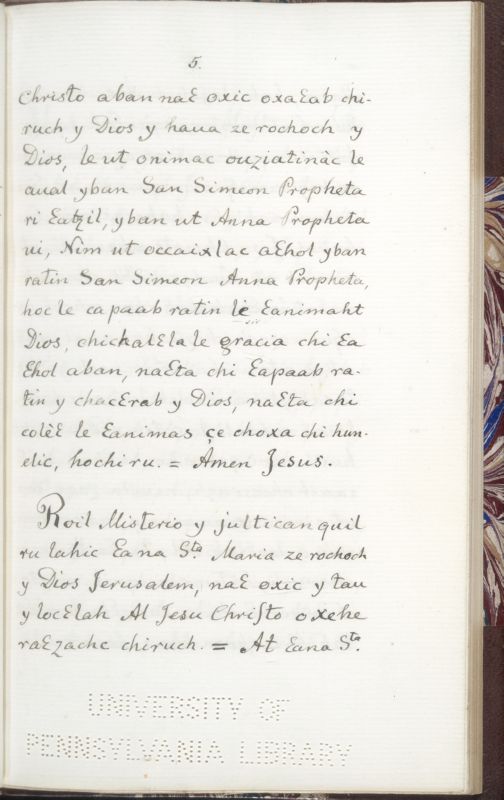 5.
Christo aban naƐ oxic oxaƐab chi-
ruch y Dios y haua ze rochoch y
Dios, le ut onimac ouziatinàc le
aual yban San Simeon Propheta
ri Eatzil, yban ut Anna Propheta
ui, Nim ut occaixlac aƐhol yban
ratin San Simeon Anna Propheta,
hoc le capaab ratin le Eanimaht
Dios, chickalƐla le gracia chi Ɛa
Ɛhol aban, naƐta chi Ɛapaab ra-
tin y chacƐrab y Dios, naƐta chi
colèƐ le Ɛanimas çe choxa chi hun-
elic, hochi ru. = Amen Jesus.
Roil Misterio y julticanquil
ru lahic Ɛa na Sta. Maria ze rochoch
y Dios Jerusalem, naƐ oxic y tau
y locƐlah Al Jesu Chriſto oxehe
raƐzachc chiruch. = At Ɛana Sta.
UNIVERSITY OF
PENNSYLVANIA LIBRARY